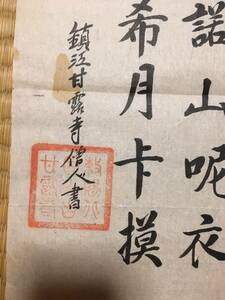 諾山呢衣
希月卡摸
鎮江甘露寺僧人書